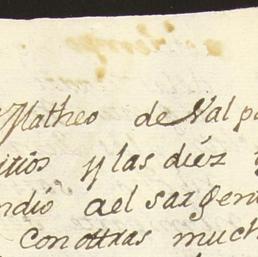 Matheo de Val pa
y las diez
ndio ael sargen
con ottras much